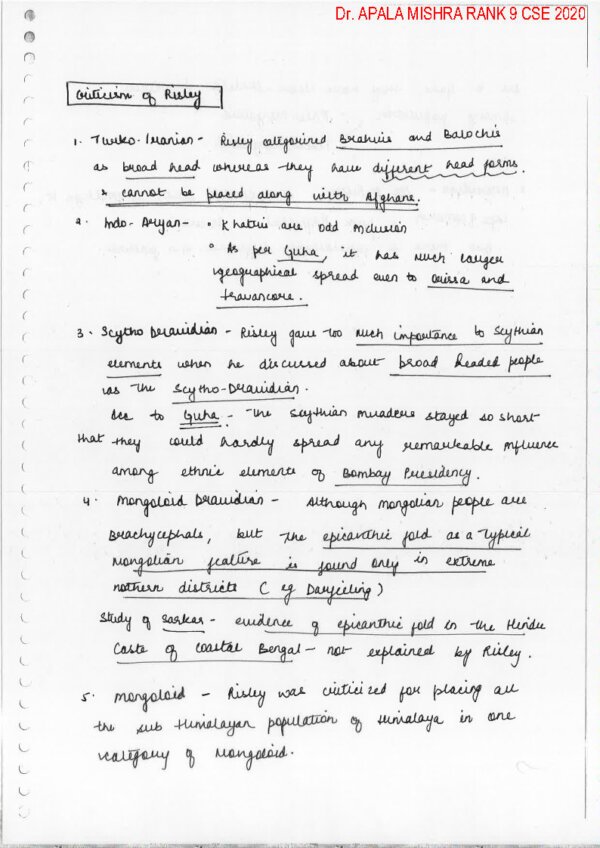 Dr. APALA MISHRA RANK 9 CSE 2020
Criticism of Risley
1. Turko-Iranian - Risley categorized Brahuis and Balochis
as broad head whereas they have different head forms
& cannot be placed along with Afghans.
2. Indo-Aryan- • Khatris are odd inclusion
• As per Guha, it has much larger
geographical spread even to Orissa and
Travancore.
3. Scytho Dravidian - Risley gave too much importance to Scythian
elements when he discussed about broad headed people
as the Scytho-Dravidian.
Acc to Guha - The Scythian invaders stayed so short
that they could hardly spread any remarkable influence
among ethnic elements of Bombay Presidency.
4. Mongoloid Dravidian - Although mongolian people are
Brachycephals, but the epicanthic fold as a typical
mongolian feature is found only in extreme
nothern districts (eg Darjeeling)
Study of Sarkar - evidence of epicanthic fold in the Hindu
Caste of coastal Bengal - not explained by Risley.
5. Mongoloid - Risley was criticized for placing all
the sub Himalayan population of Himalaya in one
category of Mongoloid.